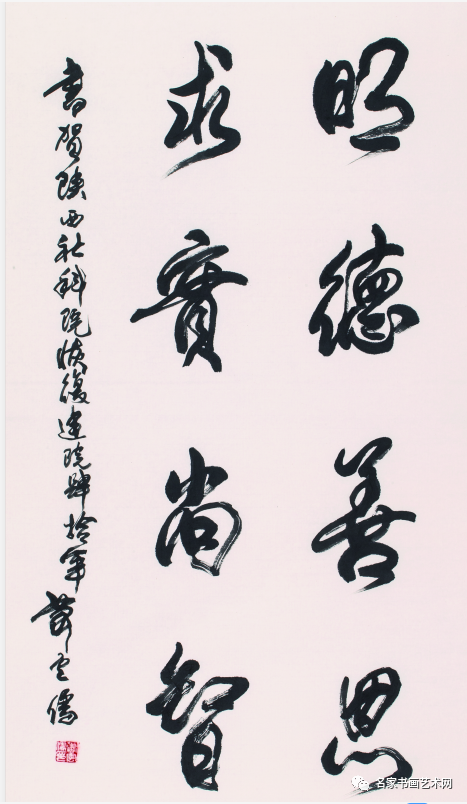 明德善思
求實尚智
書賀陕西社科院恢復建院肆拾年 薛雲儒
名家书画艺术网